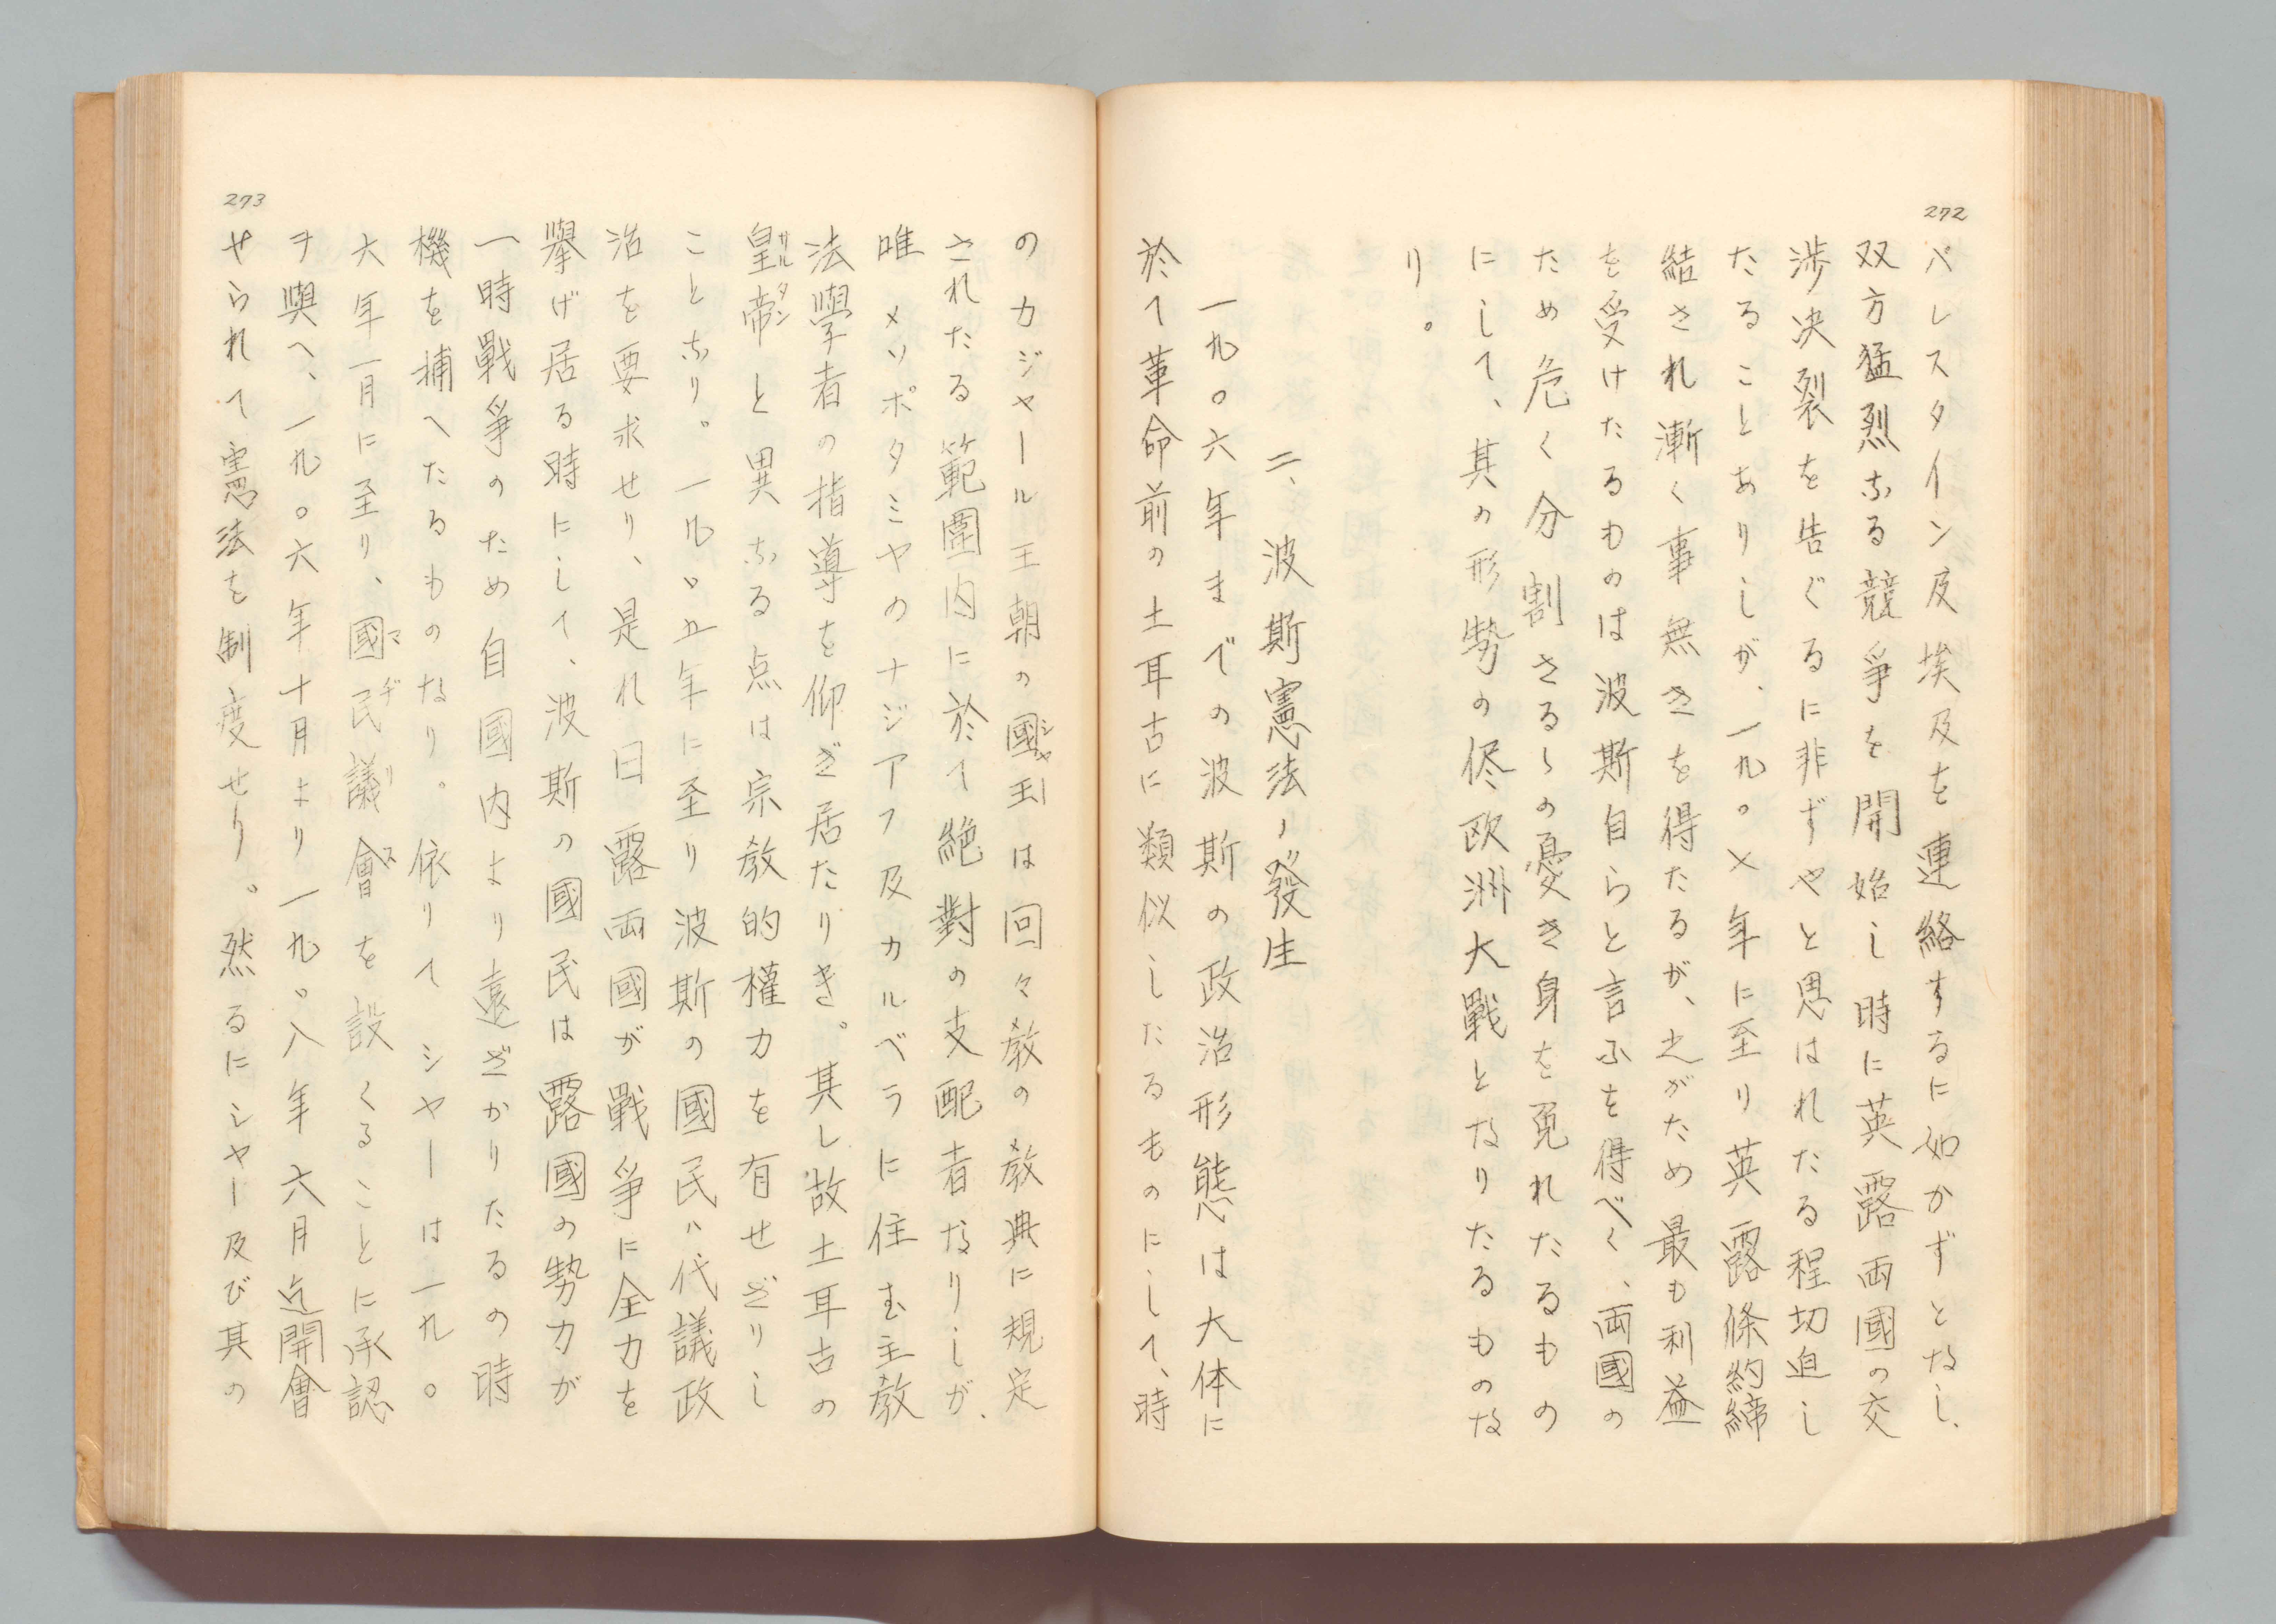 272
パレスタイン及埃及を連絡するに如かずとなし、
双方猛烈なる競爭を開始し時に英露両國の交
渉決裂を告ぐるに非ずやと思はれたる程切迫し
たることありしが、一九〇七年に至り英露條約締
結され漸く事無きを得たるが、之がため最も利益
を受けたるものは波斯自らと言ふを得べく、両國の
ため危く分割さるゝの憂き身を免れたるもの
にして、其の形勢の侭欧洲大戰となりたるものな
り。
二、波斯憲法ノ發生
一九〇六年までの波斯の政治形態は大体に
於て革命前の土耳古に類似したるものにして、時
273
のカジャール王朝の國王シャーは回々教の教典に規定
されたる範圍内に於て絶對の支配者なりしが、
唯メソポタミヤのナジアフ及カルベラに住む主教
法學者の指導を仰ぎ居たりき。其し故土耳古の
皇帝サルタンと異なる点は宗教的權力を有せざりし
ことなり。一九〇五年に至り波斯の國民ハ代議政
治を要求せり、是れ日露両國が戰爭に全力を
擧げ居る時にして、波斯の國民は露國の勢力が
一時戰爭のため自國内より遠ざかりたるの時
機を捕へたるものなり。依りてシヤーは一九〇
六年一月に至り、國民議會マヂリスを設くることに承認
ヲ與へ、一九〇六年十月より一九〇八年六月迄開會
せられて憲法を制度せり。然るにシヤー及び其の